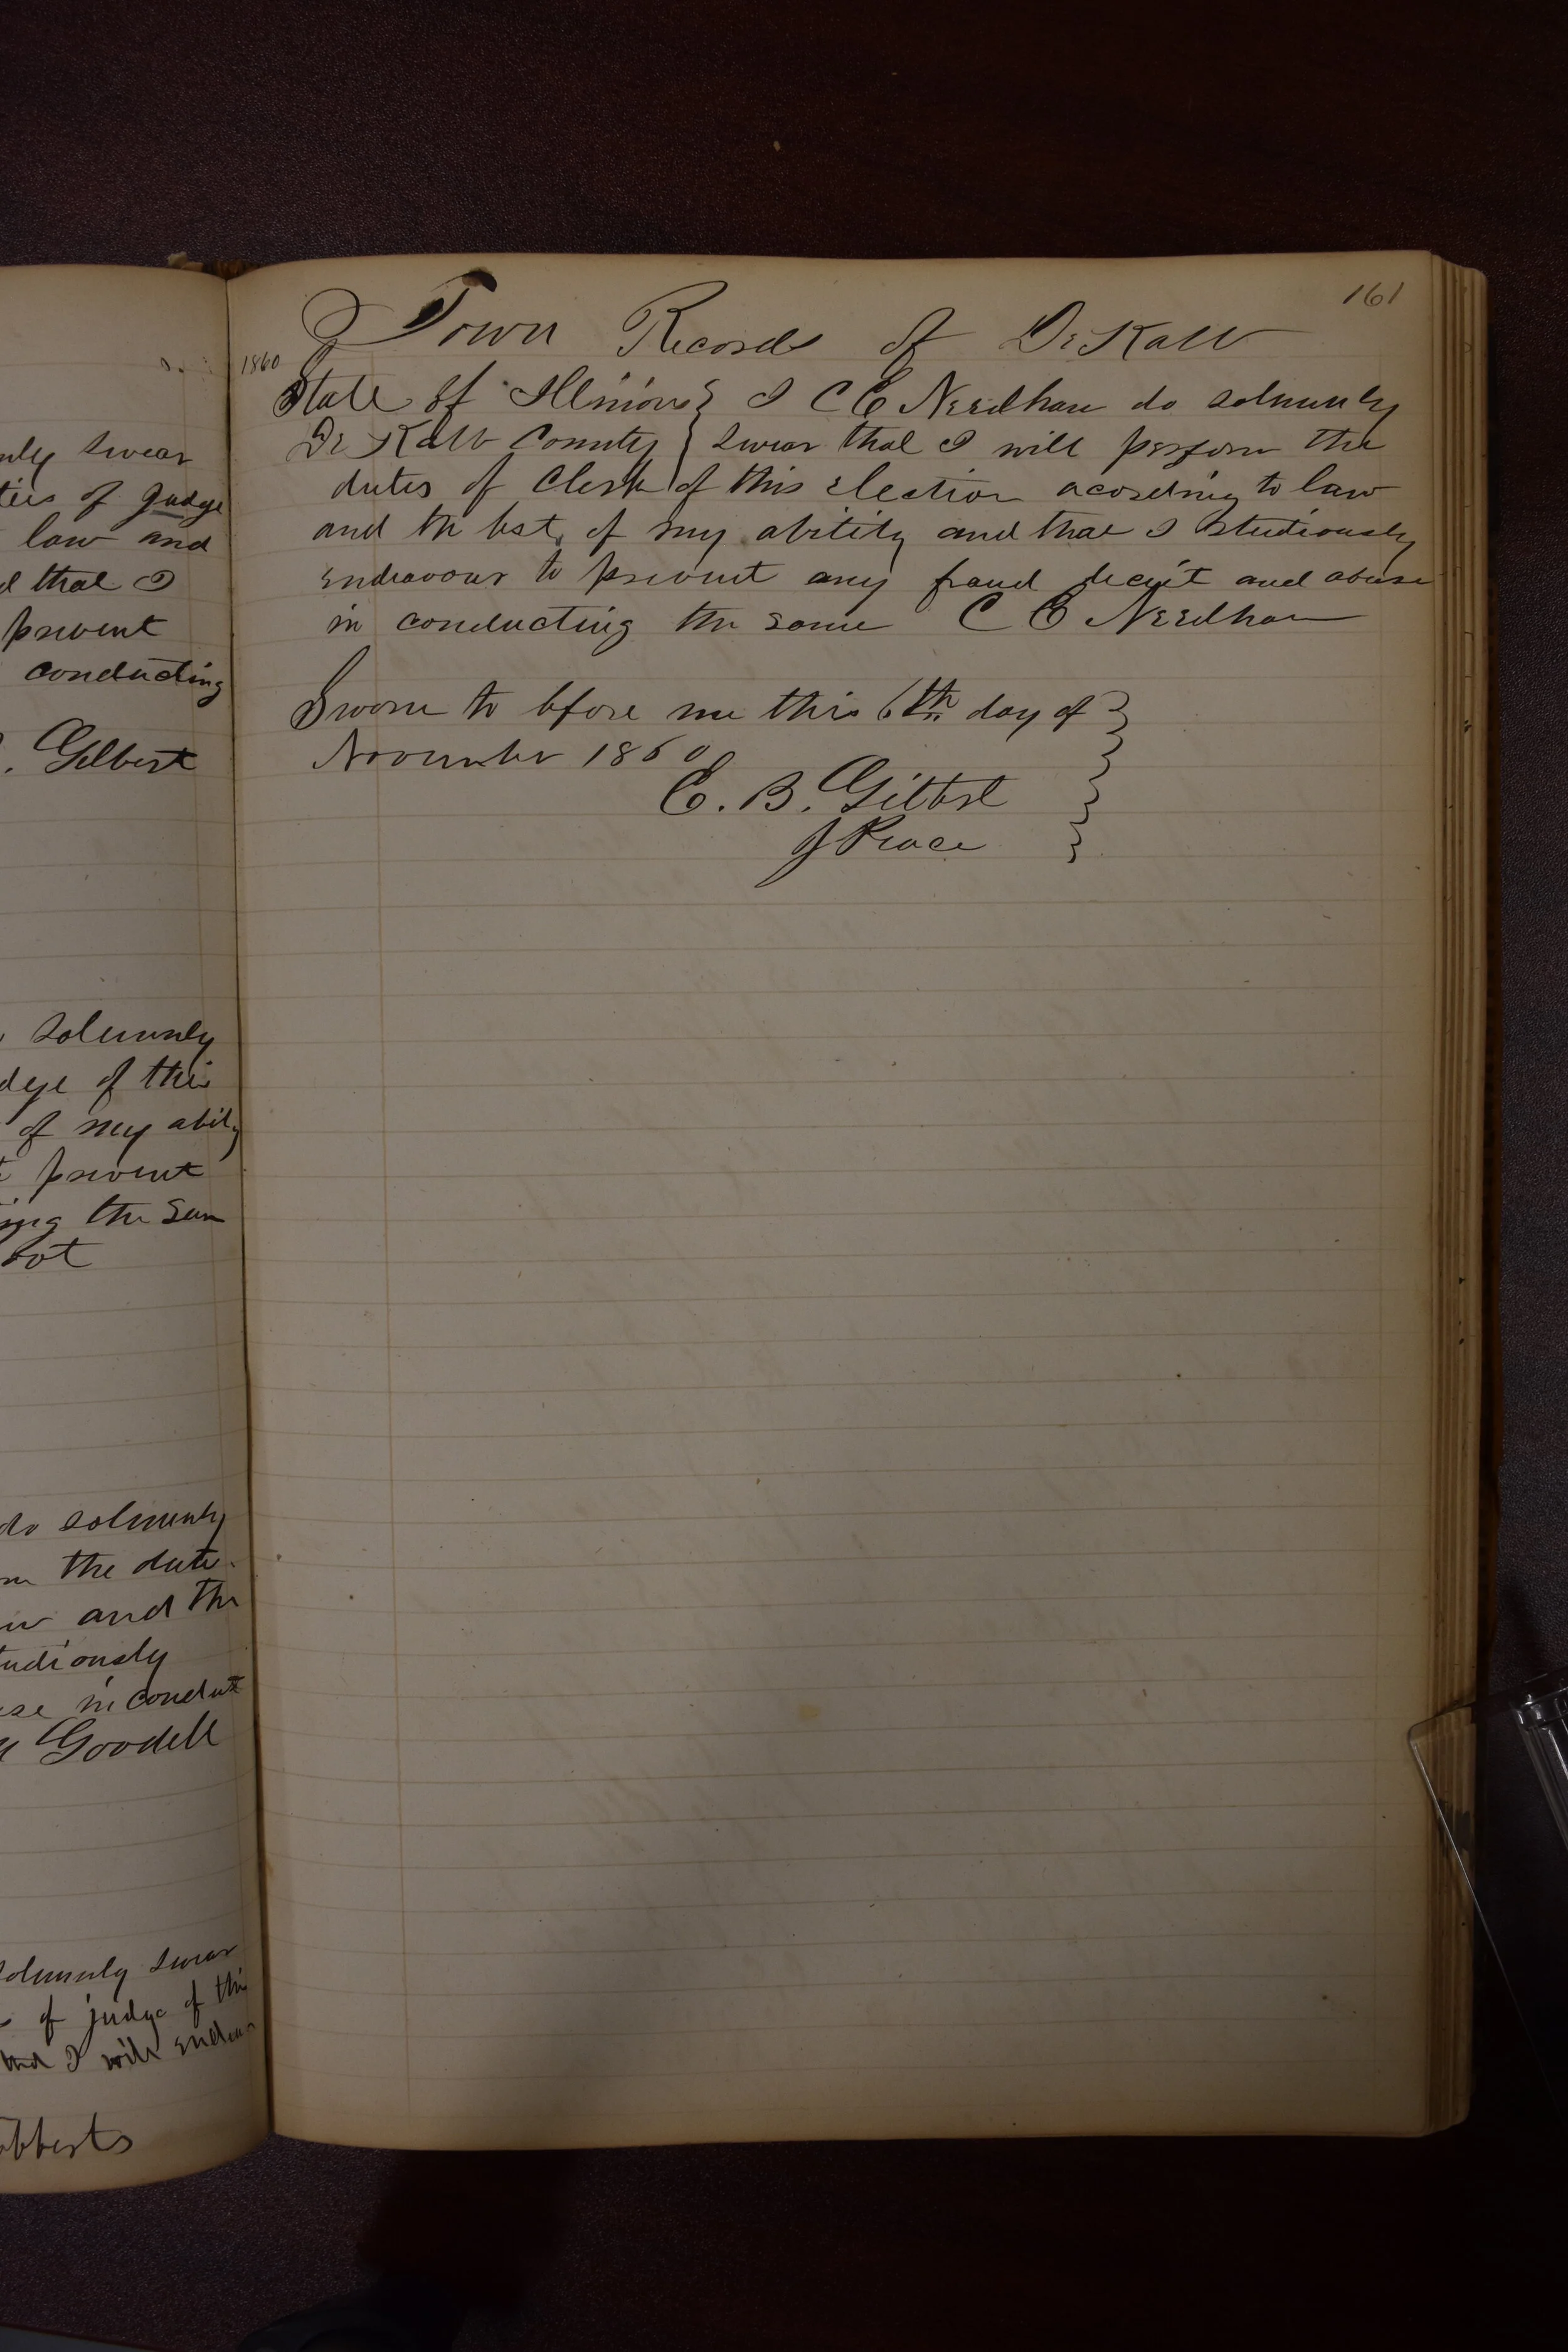 nly swear
ties of Judge
law and
d that I
prevent
conducting
. Gilbert
solemnly
dge of this
of my abily
t prevent
ing the Sam
bot
do solmnly
m the dute
w and the
tudiously
use in conduct
Goodell
solmnly swear
of judge of this
and I will endeav
obberts
161
Town Records of DeKalb
1860
State of Illinois } I C E Needham do solmnly
De Kalb County } swear that I will perform the
duties of Clerk of this election acording to law
and the best of my ability and that I studiously
endeavour to prevent any fraud deceit and abuse
in conducting the same C E Needham
Sworn to before me this 6th day of }
November 1860
E. B. Gilbert
J Peace